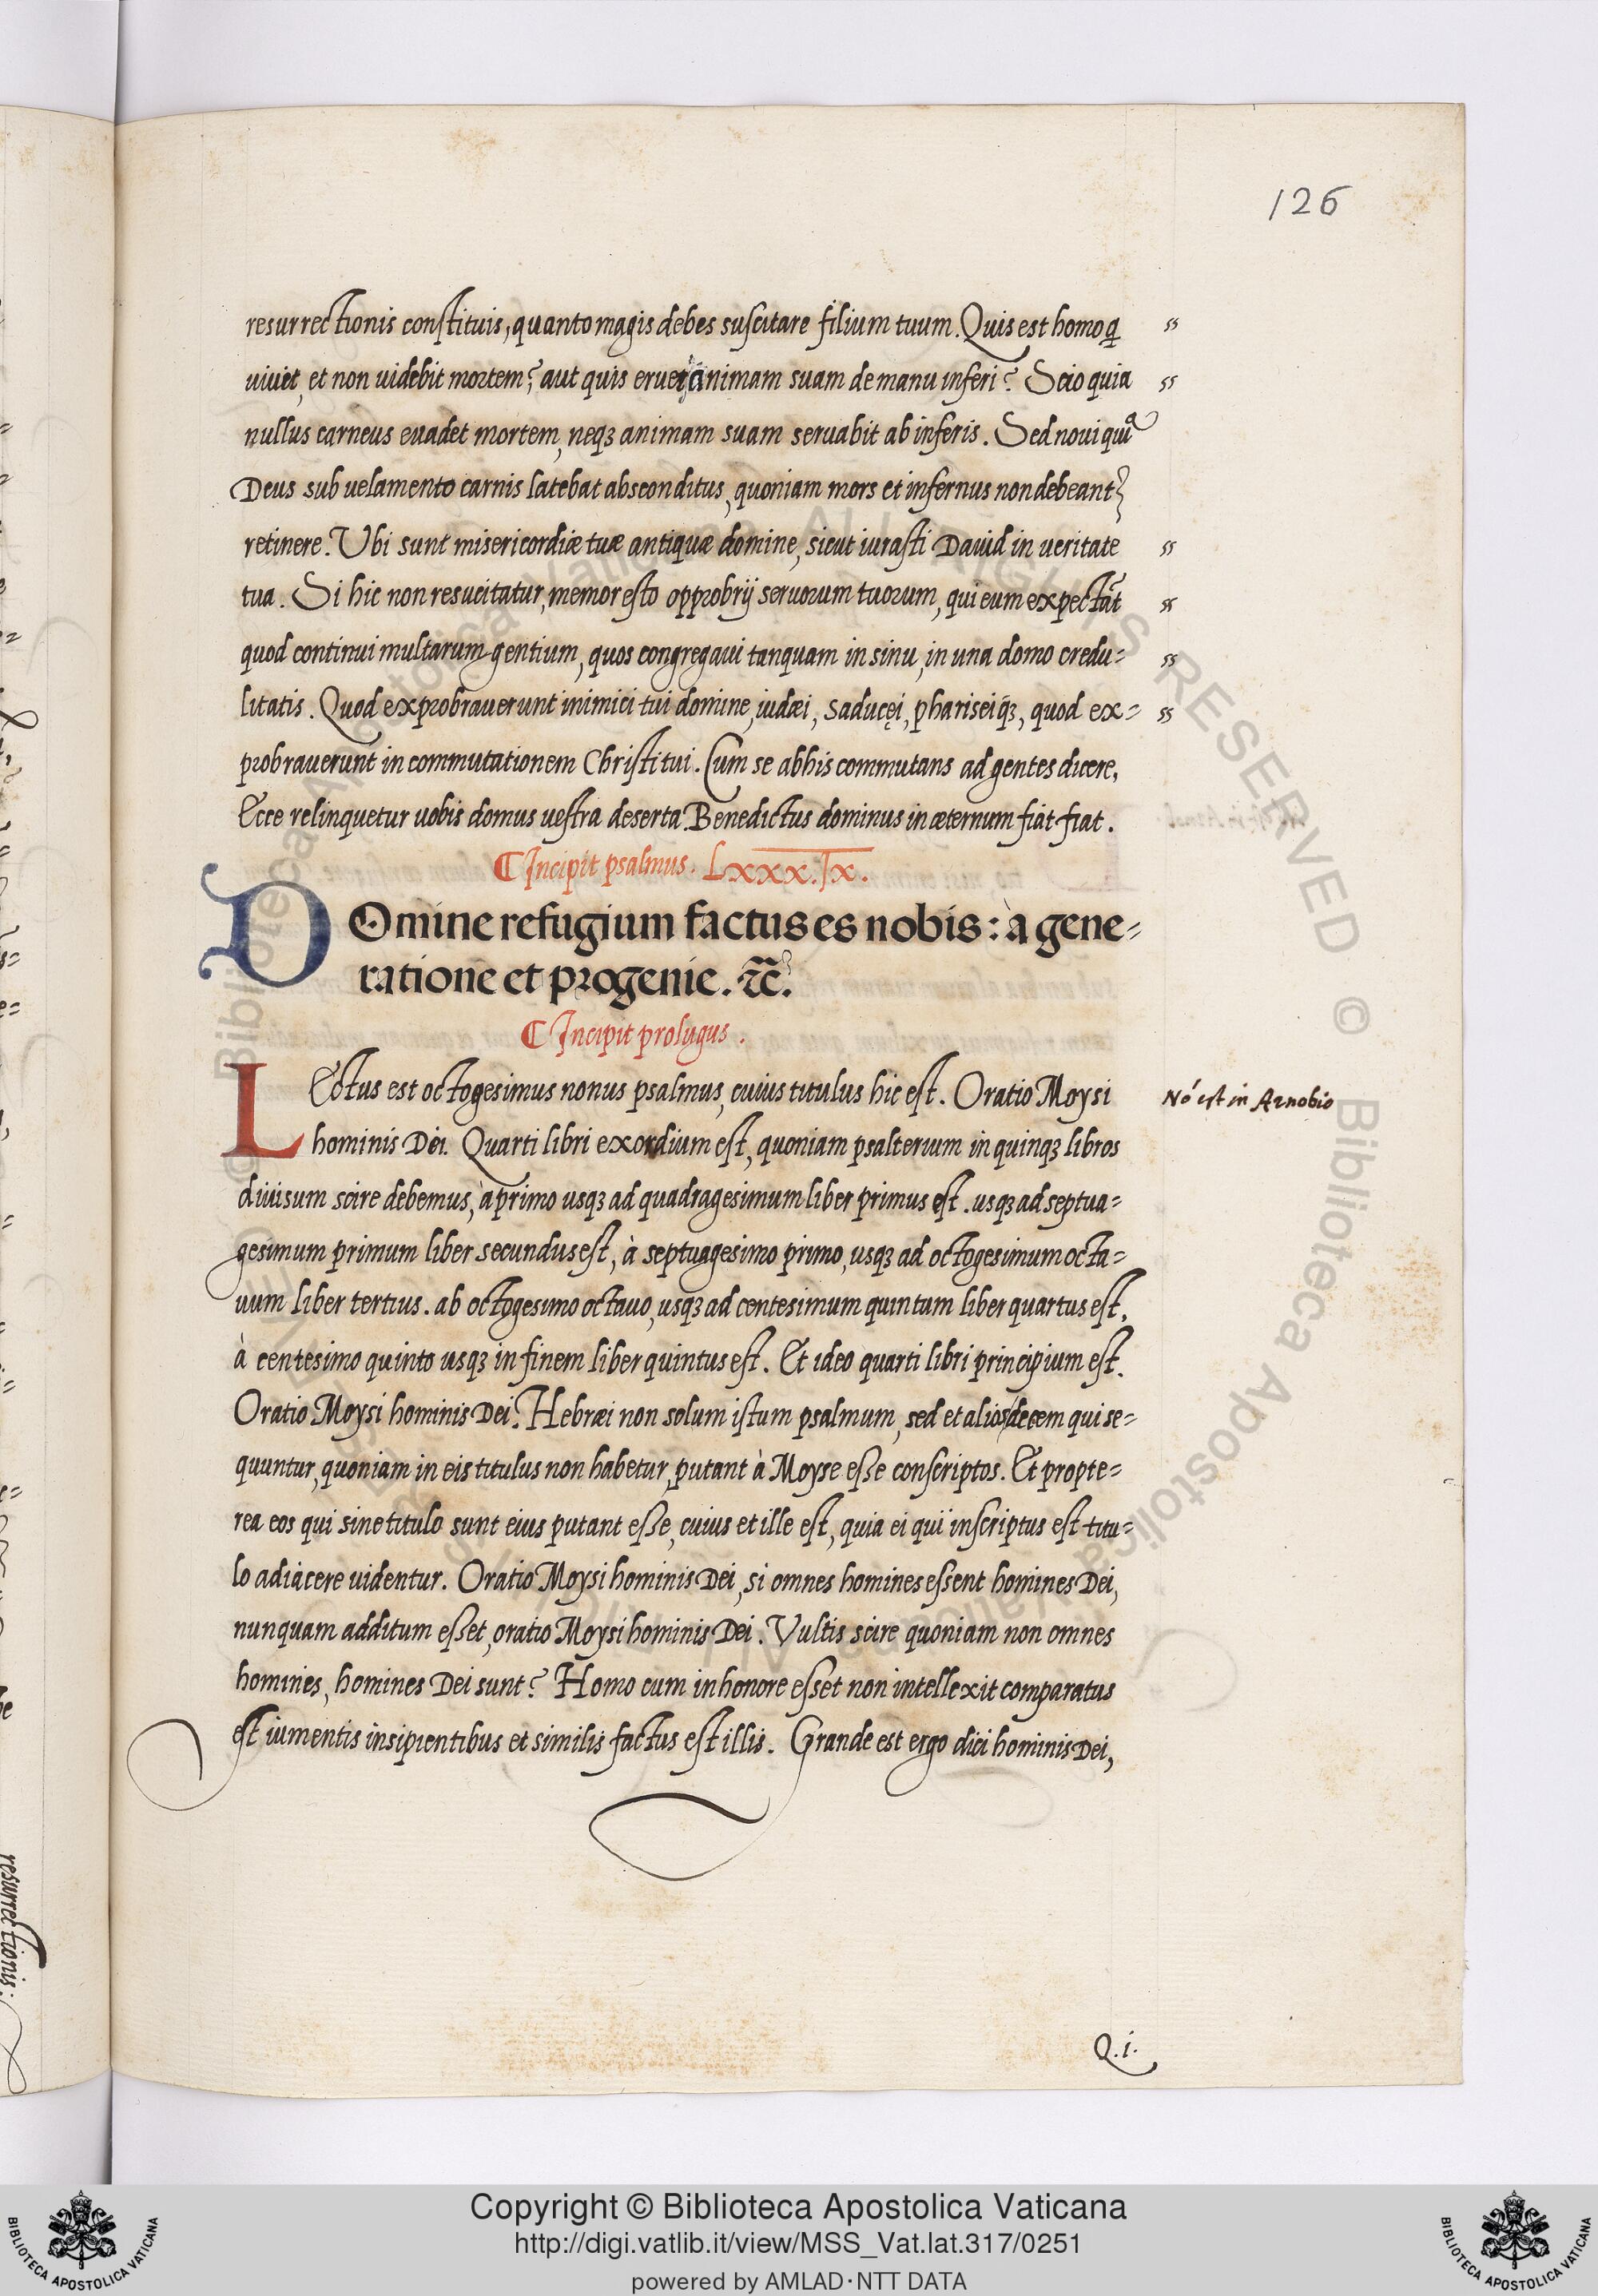 126
resurrectionis constituis, quanto magis debes suscitare filium tuum. Quis est homo q̃
uiuet, et non uidebit mortem? aut quis eruet animam suam de manu inferi? Scio quia
nullus carneus euadet mortem, neqꝫ animam suam seruabit ab inferis. Sed noui quia
Deus sub uelamento carnis latebat absconditus, quoniam mors et infernus non debeant
retinere. Ubi sunt misericordiæ tuæ antiquæ domine, sicut iurasti Dauid in ueritate
tua. Si hic non resucitatur, memor esto opprobrij seruorum tuorum, qui eum expectãt
quod continui multarum gentium, quos congregaui tanquam in sinu, in una domo credu-
litatis. Quod exprobrauerunt inimici tui domine, iudæi, saducęi, phariseiqꝫ, quod ex-
probrauerunt in commutationem Christi tui. Cum se ab his commutans ad gentes dicere,
Ecce relinquetur uobis domus uestra deserta. Benedictus dominus in æternum fiat fiat.
¶ Incipit psalmus. Lxxx.Ix.
DOmine refugium factus es nobis: à gene-
ratione et progenie. ⁊c̃.
¶ Incipit prologus.
LEctus est octogesimus nonus psalmus, cuius titulus hic est. Oratio Moysi
Nõ est in Arnobio
hominis Dei. Quarti libri exordium est, quoniam psalterium in quinqꝫ libros
diuisum scire debemus, à primo usqꝫ ad quadragesimum liber primus est. usqꝫ ad septua-
gesimum primum liber secundus est, à septuagesimo primo, usqꝫ ad octogesimum octa-
uum liber tertius. ab octogesimo octauo, usqꝫ ad centesimum quintum liber quartus est.
à centesimo quinto usqꝫ in finem liber quintus est. Et ideo quarti libri principium est.
Oratio Moysi hominis Dei. Hebræi non solum istum psalmum, sed et alios decem qui se-
quuntur, quoniam in eis titulus non habetur, putant à Moyse esse conscriptos. Et propte-
rea eos qui sine titulo sunt eius putant esse, cuius et ille est, quia ei qui inscriptus est titu-
lo adiacere uidentur. Oratio Moysi hominis Dei, si omnes homines essent homines Dei,
nunquam additum esset, oratio Moysi hominis Dei. Vultis scire quoniam non omnes
homines, homines Dei sunt? Homo cum in honore esset non intellexit comparatus
est iumentis insipientibus et similis factus est illis. Grande est ergo dici hominis Dei,
Q.i.
resurrectionis.
Copyright © Biblioteca Apostolica Vaticana
http://digi.vatlib.it/view/MSS_Vat.lat.317/0251
powered by AMLAD·NTT DATA
BIBLIOTECA APOSTOLICA VATICANA
BIBLIOTECA APOSTOLICA VATICANA